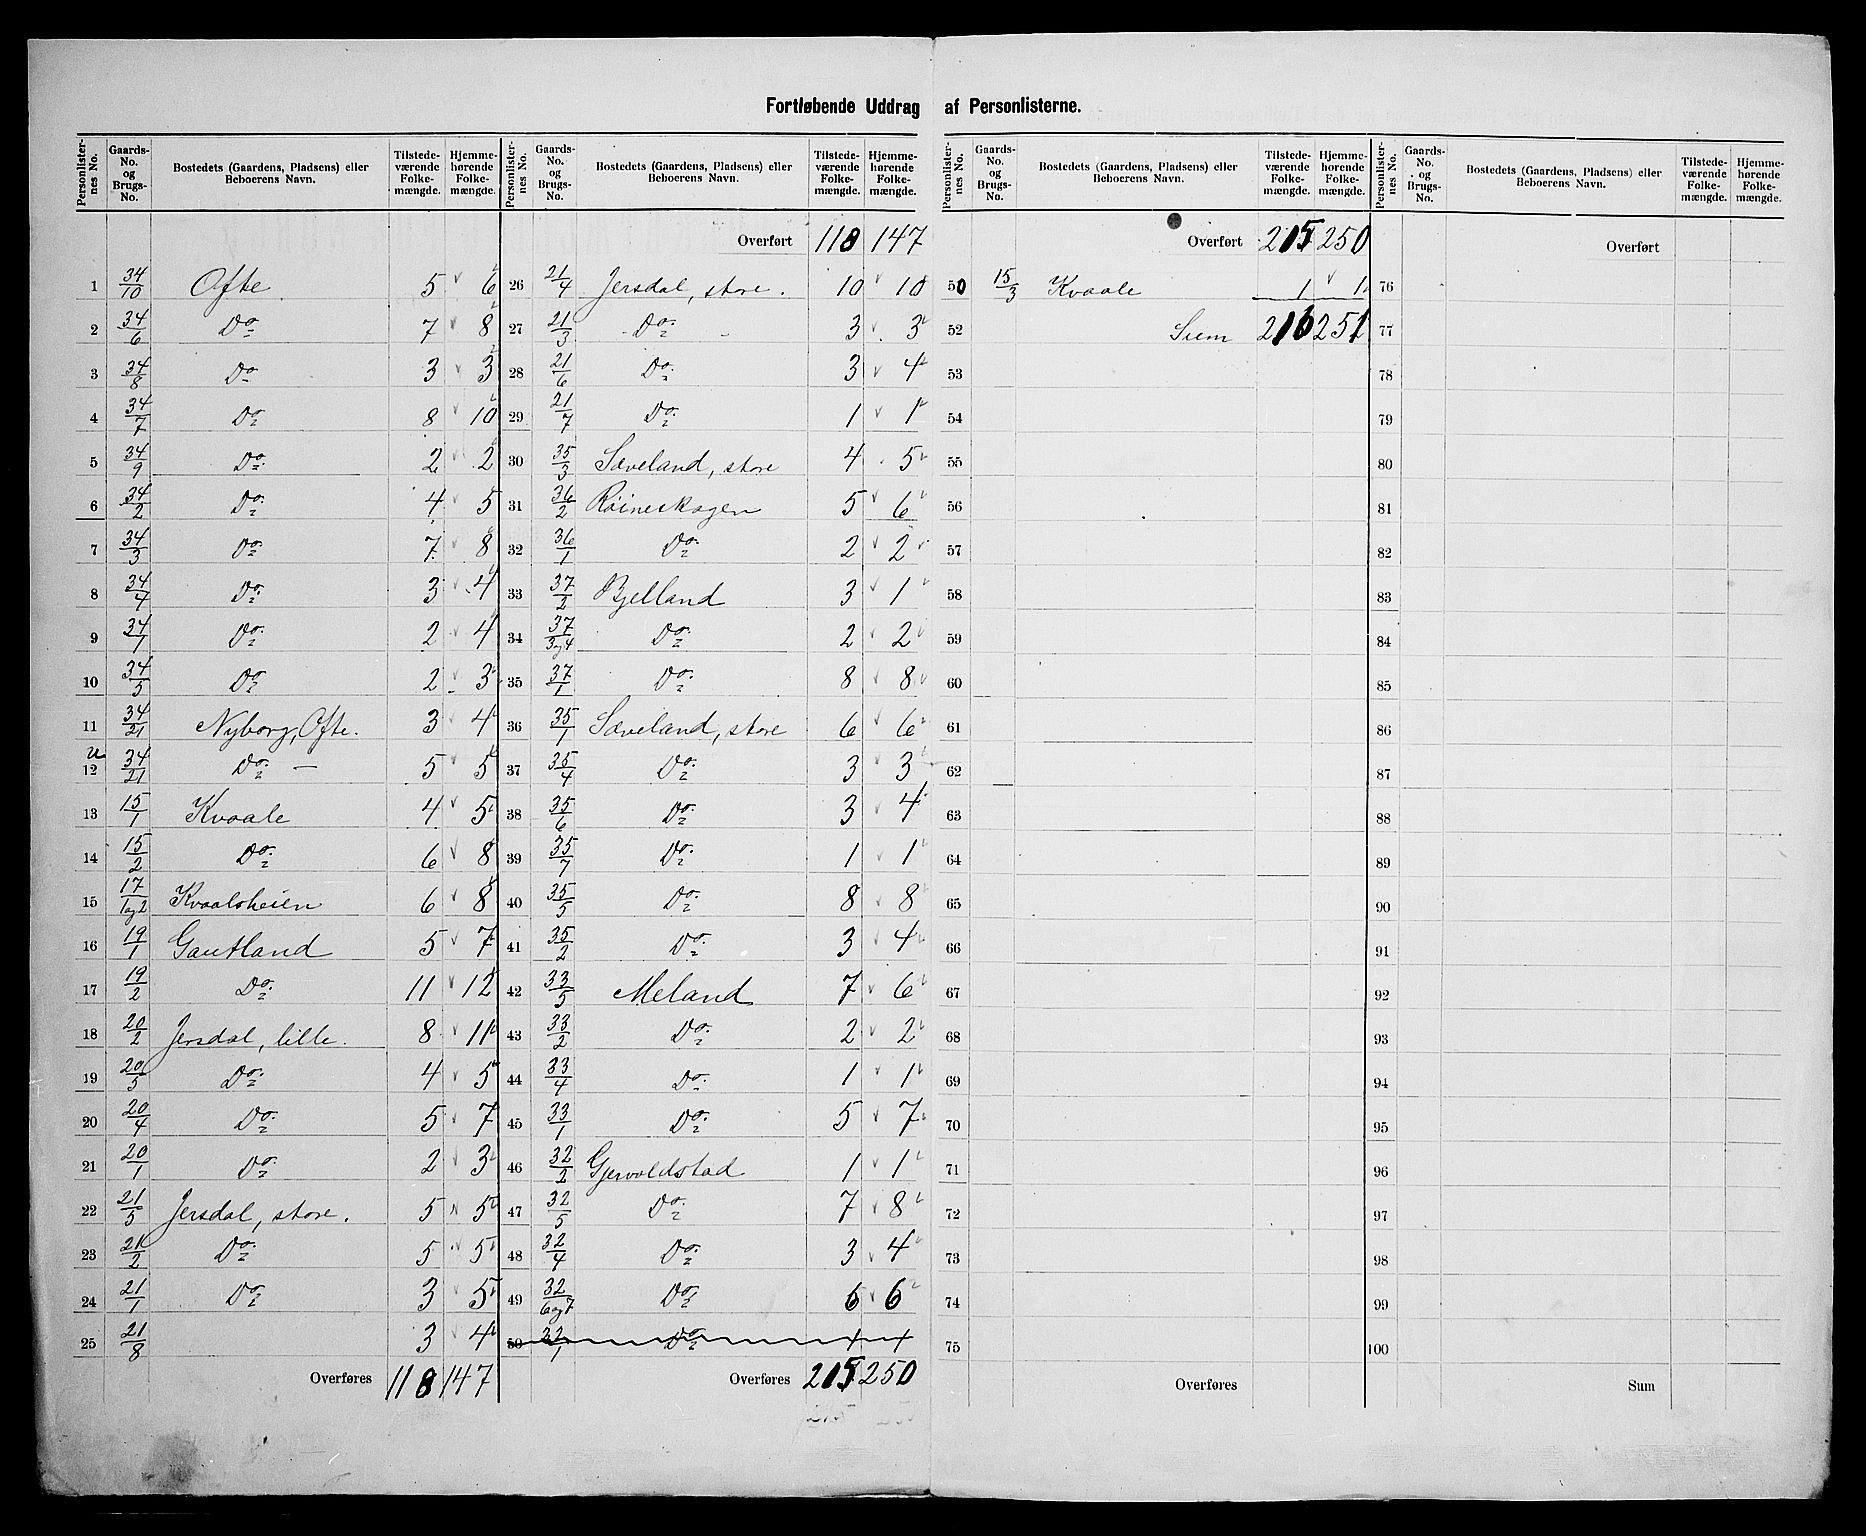 Fortløbende Uddrag af Personlisterne.
Personlister-nes No. | Gaards-No. og Brugs-No. | Bostedets (Gaardens, Pladsens) eller Beboerens Navn. | Tilstede-værende Folke-mængde. | Hjemme-hørende Folke-mængde.
1 34/10 Ofte 5 6
2 34/6 Do 7 8
3 34/8 Do 3 3
4 34/7 Do 8 10
5 34/9 Do 2 2
6 34/2 Do 4 5
7 34/3 Do 7 8
8 34/4 Do 3 4
9 34/1 Do 2 4
10 34/5 Do 2 3
11 34/21 Nyborg, Ofte. 3 4
u
12 34/21 Do — 5 5
13 15/1 Kvaale 4 5
14 15/2 Do 6 8
15 17/1og2 Kvaalsheien 6 8
16 19/1 Gautland 5 7
17 19/2 Do 11 12
18 20/2 Jersdal, lille. 8 11
19 20/5 Do 4 5
20 20/4 Do 5 7
21 20/1 Do 2 3
22 21/5 Jersdal, store. 5 5
23 21/2 Do 5 5
24 21/1 Do 3 5
25 21/8 3 4
Overføres 118 147
Personlister-nes No. | Gaards-No. og Brugs-No. | Bostedets (Gaardens, Pladsens) eller Beboerens Navn. | Tilstede-værende Folke-mængde. | Hjemme-hørende Folke-mængde.
Overført 118 147
26 21/4 Jersdal, store. 10 10
27 21/3 Do 3 3
28 21/6 Do 3 4
29 21/7 Do 1 1
30 35/3 Sæveland, store 4 5
31 36/2 Røineskogen 5 6
32 36/1 Do 2 2
33 37/2 Bjelland 3 1
34 37/3og4 Do 2 2
35 37/1 Do 8 8
36 35/1 Sæveland, store 6 6
37 35/4 Do 3 3
38 35/6 Do 3 4
39 35/7 Do 1 1
40 35/5 Do 8 8
41 35/2 Do 3 4
42 33/5 Meland 7 6
43 33/2 Do 2 2
44 33/4 Do 1 1
45 33/1 Do 5 7
46 32/2 Gjervoldstad 1 1
47 32/5 Do 7 8
48 32/4 Do 3 4
49 32/6og7 Do 6 6
50 32/1 Do 1 1
Overføres 215 250
Personlister-nes No. | Gaards-No. og Brugs-No. | Bostedets (Gaardens, Pladsens) eller Beboerens Navn. | Tilstede-værende Folke-mængde. | Hjemme-hørende Folke-mængde.
Overført 215 250
50 15/3 Kvaale 1 1
52 Sum 216 251
53
54
55
56
57
58
59
60
61
62
63
64
65
66
67
68
69
70
71
72
73
74
75
Overføres
Personlister-nes No. | Gaards-No. og Brugs-No. | Bostedets (Gaardens, Pladsens) eller Beboerens Navn. | Tilstede-værende Folke-mængde. | Hjemme-hørende Folke-mængde.
Overført
76
77
78
79
80
81
82
83
84
85
86
87
88
89
90
91
92
93
94
95
96
97
98
99
100
Sum